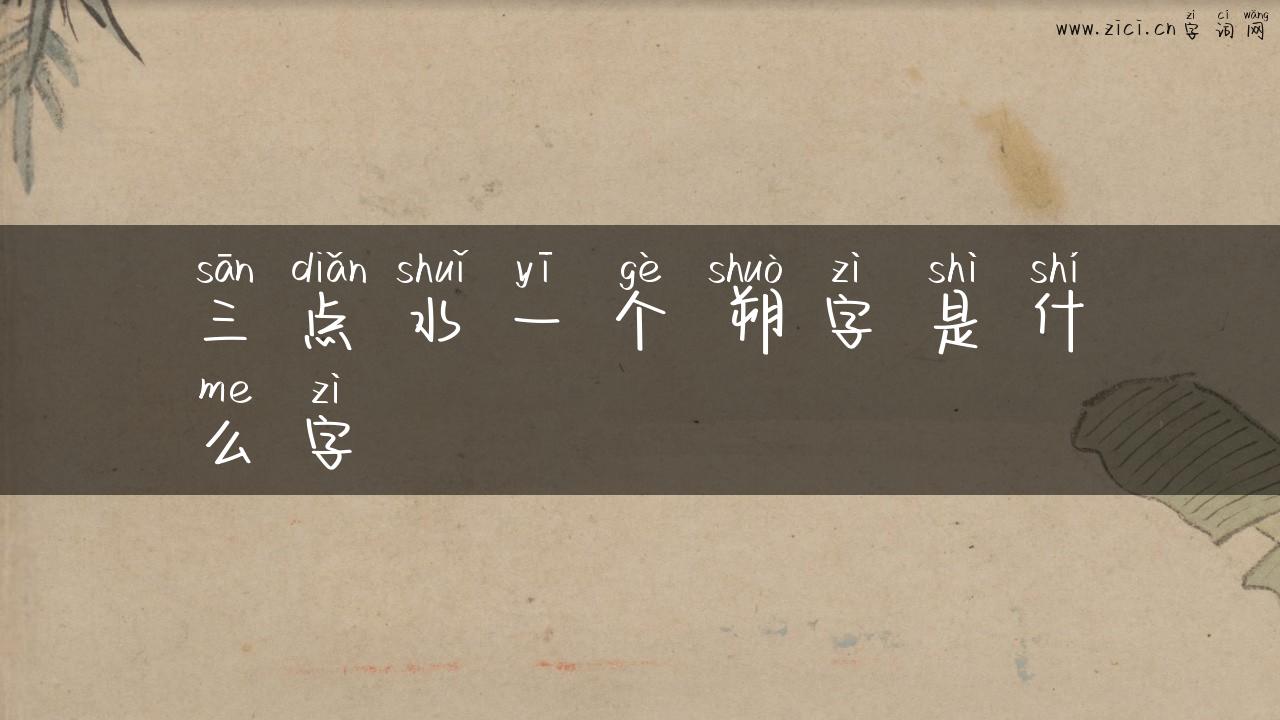 zì cí wǎng
www.zici.cn 字词网
sān diǎn shuǐ yī gè shuò zì shì shí
三点水一个朔字是什
me zì
么字